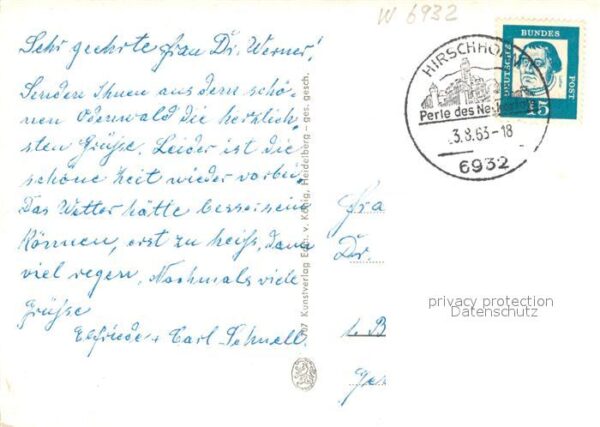 W 6932
Sehr geehrte Frau Dr. Werner!
Senden Ihnen aus dem schö-
nen Odenwald die herzlich-
sten Grüße. Leider ist die
schöne Zeit wieder vorbei.
Das Wetter hätte besser sein
können, erst zu heiß, dann
viel regen. Nochmals viele
Grüße
Elfriede + Carl Schnell.
Kunstverlag Edm. v. König, Heidelberg – ges. gesch.
DEUTSCHE
BUNDES
POST
15
HIRSCHHO
Perle des Neckartal
3.8.63-18
6932
Fra
Dr.
privacy protection
Datenschutz